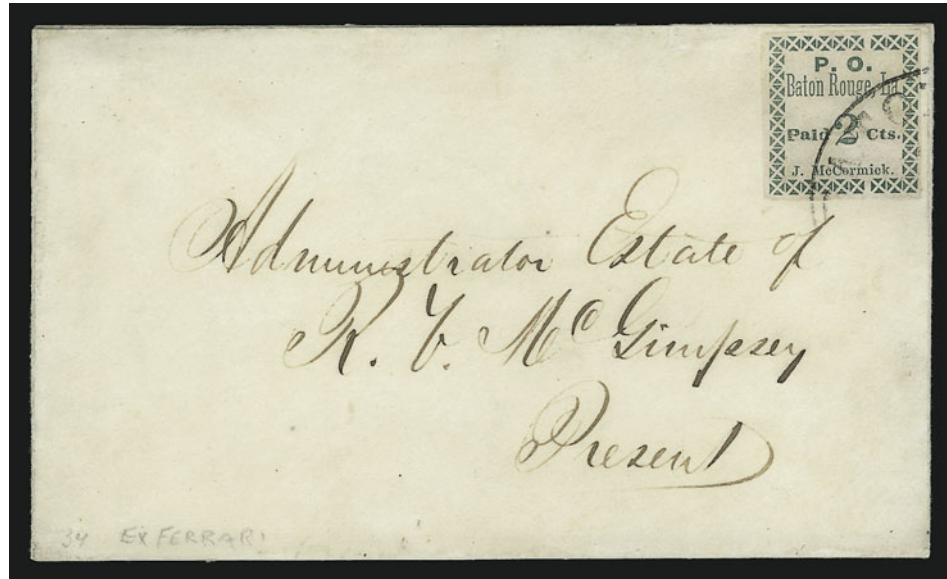 P. O.
Baton Rouge, La.
Paid 2 Cts.
J. McCormick.
Administrator Estate of
R. V. McGimpsey
Present
34 EX FERRARI